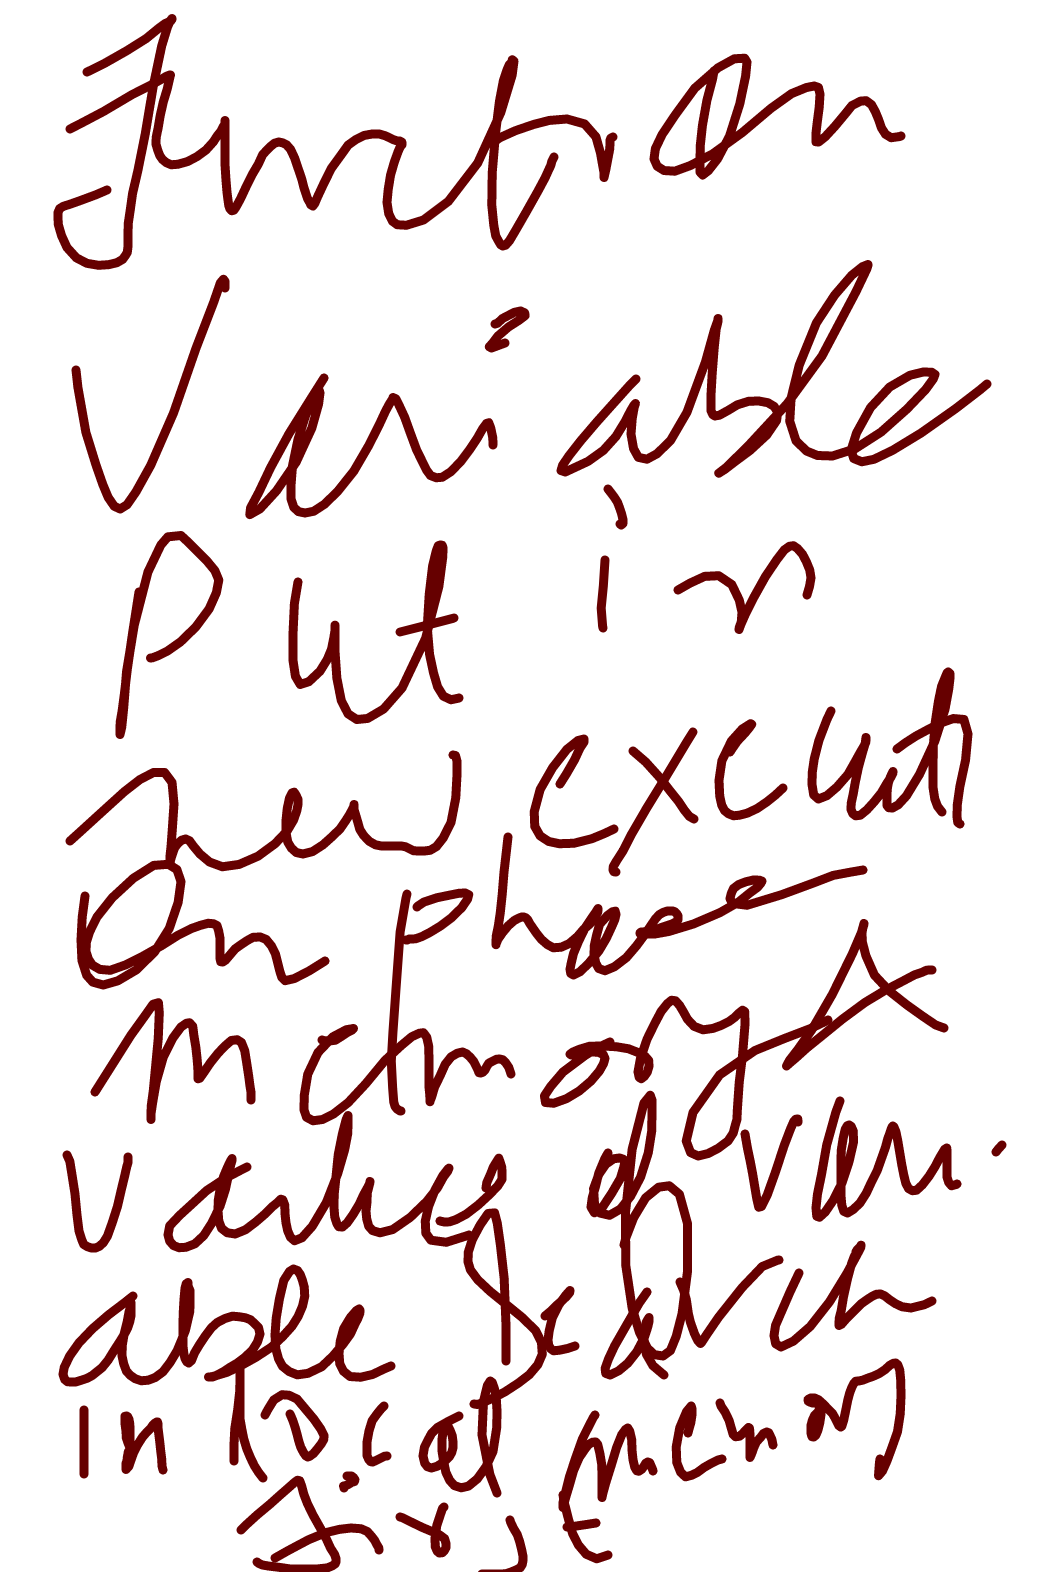 Function
Variable
Put in
new executi
on phase
memory &
values of vari
able search
in local memory
first